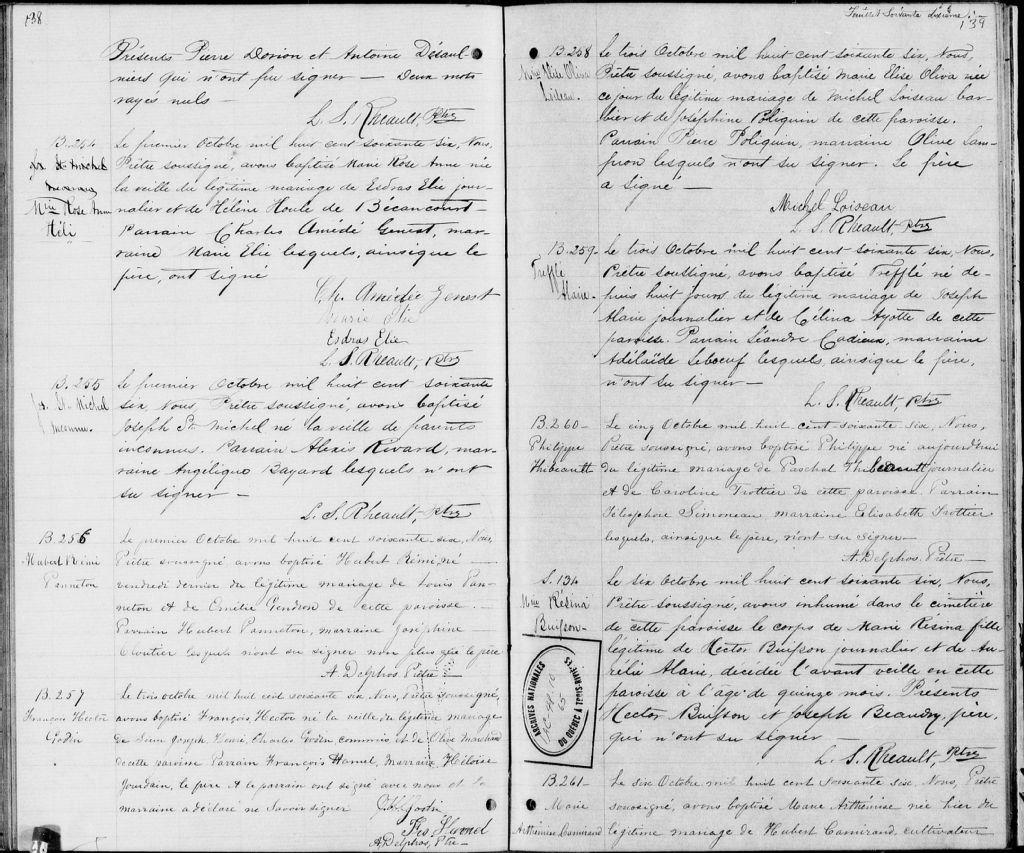 138
Présents Pierre Dorion et Antoine Désaul-
niers qui n'ont pu signer — Deux mots
rayés nuls —
L. S. Rheault, Ptre
B. 254
Mie Rose Anne
Héli
Le premier Octobre mil huit cent soixante six, Nous,
Prêtre soussigné, avons baptisé Marie Rose Anne née
la veille du légitime mariage de Esdras Elie jour-
nalier et de Hélène Houle de Bécancourt —
Parrain Charles Amédé Genest, mar-
raine Marie Elie lesquels, ainsique le
père, ont signé
Ch. Amédée Genest
Marie Elie
Esdras Elie
L. S. Rheault, Ptre
B. 255
Jos. St. Michel
Inconnu.
Le premier Octobre mil huit cent soixante
six, Nous, Prêtre soussigné, avons baptisé
Joseph St. Michel né la veille de parents
inconnus. Parrain Alexis Rivard, mar-
raine Angélique Bayard lesquels n'ont
su signer —
L. S. Rheault, Ptre
B 256
Hubert Rémi
Panneton
Le premier Octobre mil huit cent soixante-six, Nous,
Prêtre soussigné avons baptisé Hubert Rémi né —
vendredi dernier du légitime mariage de Louis Pan-
neton et de Emélie Gendron de cette paroisse. —
Parrain Hubert Panneton, marraine Joséphine —
Cloutier lesquels n'ont su signer non plus que le père
A. Delphos Prêtre
B. 257
François Hector
Godin
Le trois octobre mil huit cent soixante six, Nous, Prêtre soussigné,
avons baptisé François, Hector né la veille du légitime mariage
de Sieur Joseph, Henri, Charles Godin commis et de Olive Marchand
de cette paroisse Parrain François Hamel, Marraine Héloïse
Jourdain, le père et le parrain ont signé avec nous et la
marraine a déclaré ne savoir signer
Frs. Hamel
A. Delphos, Ptre —
Feuillet Soixante dixième
139
B. 258
Mie Elise Oliva
Loiseau.
Le trois Octobre mil huit cent soixante six, Nous,
Prêtre soussigné, avons baptisé Marie Elise Oliva née
ce jour du légitime mariage de Michel Loiseau bar-
bier et de Joséphine Poliquin de cette paroisse.
Parrain Pierre Poliquin, marraine Olive Lam-
pron lesquels n'ont su signer. Le père
a signé —
Michel Loiseau
L. S. Rheault, Ptre
B. 259 —
Trefflé
Alarie.
Le trois Octobre mil huit cent soixante six, Nous,
Prêtre soussigné, avons baptisé Trefflé né de-
puis huit jours du légitime mariage de Joseph
Alarie journalier et de Célina Ayotte de cette
paroisse. Parrain Léandre Cadieux, marraine
Adélaïde Leboeuf lesquels, ainsique le père,
n'ont su signer —
L. S. Rheault, Ptre
B. 260 —
Philippe
Thibeault
Le cinq Octobre mil huit cent soixante six, Nous,
Prêtre soussigné, avons baptisé Philippe né aujourd'hui
du légitime mariage de Paschal Thibeault journalier
et de Caroline Trottier de cette paroisse. Parrain
Télésphore Simoneau marraine Elisabeth Trottier
lesquels, ainsique le père, n'ont su signer —
A. Delphos Prêtre —
S. 134
Mie Résina
Buisson —
Le six Octobre mil huit cent soixante six, Nous,
Prêtre soussigné, avons inhumé dans le cimetière
de cette paroisse le corps de Marie Resina fille
légitime de Hector Buisson journalier et de Au-
rélie Alarie, décédée l'avant veille en cette
paroisse à l'age de quinze mois. Présents
Hector Buisson et Joseph Beaudry, père,
qui n'ont su signer —
L. S. Rheault, Ptre
ARCHIVES NATIONALES
DU QUÉBEC À TROIS-RIVIÈRES
B. 261 —
Marie
Arthémise Camirand
Le six Octobre mil huit cent soixante six, Nous, Prêtre
soussigné, avons baptisé Marie Arthémise née hier du
légitime mariage de Hubert Camirand, cultivateur